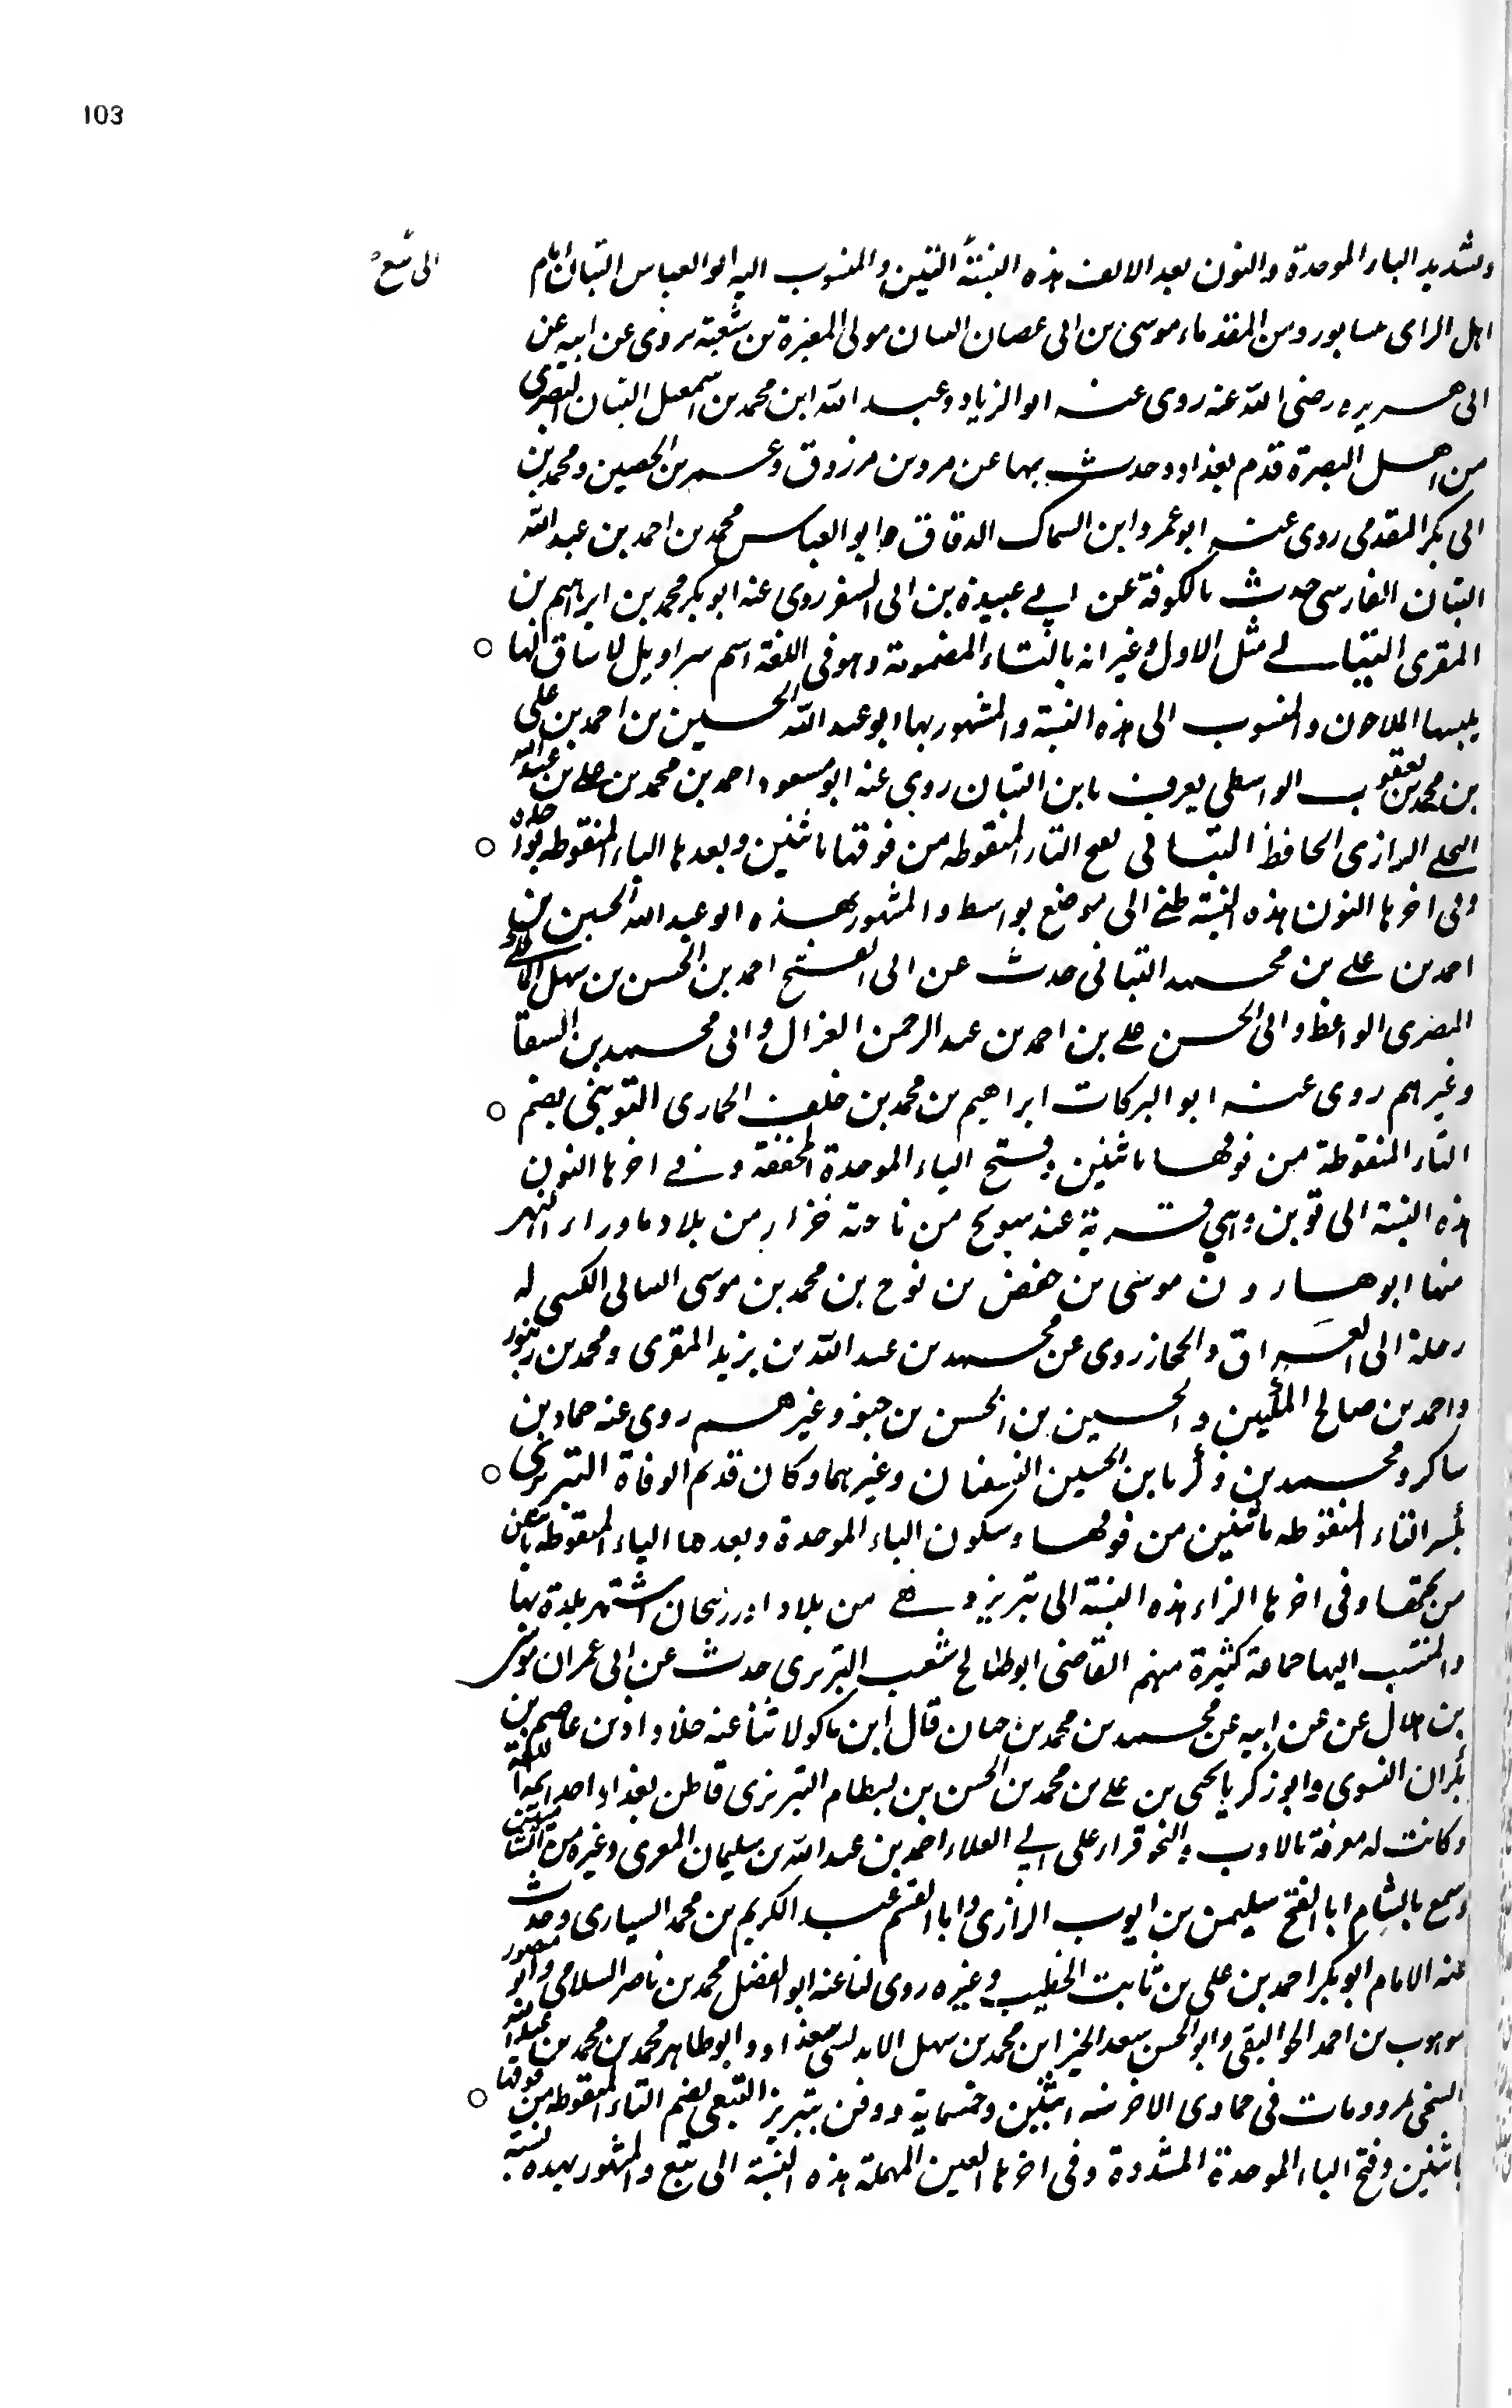 103
وتشديد الباء الموحدة والنون بعد الالف هذه النسبة التبن والمنسوب اليه ابو العباس التبان امام
اهل الراى بنيسابور ومن القدماء موسى بن ابى عصان التبان مولى المغيرة بن شعبة يروى عن ابيه عن
ابى هريره رضى الله عنه روى عنه ابو الزياد وعبد الله ابن محمد بن اسمعيل التبان البصرى
من اهل البصرة قدم بغداد وحدث بها عن مرون مرزوق وعمر بن الحصين ومحمد بن
ابى بكر المقدمى روى عنه ابو عمرو ابن السماك الدقاق وابو العباس محمد بن احمد بن عبد الله
التبان الفارسى حدث بالكوفة عن ابي عبيدة بن ابى السفر روى عنه ابو بكر محمد بن ابراهيم بن
المقرى التبانـــي مثل الاول وغير انه بالتاء المضمومة وهو فى اللغة اسم سراويل لا ساق لها ○
يلبسها الملاحون والمنسوب الى هذه النسبة والمشهور بها ابو عبد الله الحسين بن احمد بن على
بن محمد بن يعقوب الواسطى يعرف بابن التبان روى عنه ابو مسعود احمد بن محمد بن على بن عبد الله
البجلى الرازى الحافظ التبانى بفتح التاء المنقوطه من فوقها باثنين وبعدها الباء المنقوطه بواحدة ○
وفى اخرها النون هذه النسبة ظني الى موضع بواسط والمشهور بهذه ابو عبد الله الحسين بن
احمد بن على بن محمد التبانى حدث عن ابى الفتح احمد بن الحسن بن سهل المالكى
المصرى الواعظ وابى الحسن على بن احمد بن عبد الرحمن الغزال وابى محمد بن السقا
وغيرهم روى عنه ابو البركات ابراهيم بن محمد بن خلف الجمارى التوبنى بضم ○
التاء المنقوطة من فوقها باثنين وفتح الباء الموحدة المخففة وفى اخرها النون
هذه النسبة الى توبن وهي قرية عند سوبخ من ناحية خزار من بلاد ما وراء النهر
منها ابو هارون موسى بن حفص بن نوح بن محمد بن موسى التبانى الكسى له
رحلة الى العراق والحجاز روى عن محمد بن عبد الله بن يزيد المقرى ومحمد بن زنبور
واحمد بن صالح المكيين والحسين بن الحسن بن حبو وغيرهم روى عنه حماد بن
شاكر ومحمد بن زكريا بن الحسين النسفيان وغيرهما وكان قديم الوفاة التبريزى ○
بكسر التاء المنقوطه باثنين من فوقها وسكون الباء الموحدة وبعدها الياء المنقوطه باثنين
من تحتها وفى اخرها الزاء هذه النسبة الى تبريز وهى من بلاد اذربيجان اشتهر بلدة بها
والمنتسب اليها جماعة كثيرة منهم القاضى ابو صالح شعيب التبريزى حدث عن ابى عمران موسى
بن هلال عن عن ابيه عن محمد بن محمد بن حيان قال ابن ماكولا ثنا عنه خلاد اذ بن عاصم بن
بكران النسوى وابو زكريا يحيى بن على بن محمد بن الحسن بن بسطام التبريزى قاطن بغداد احد ايمة اللغة
وكانت له معرفة بالادب والنحو قراء على ابي العلاء احمد بن عبد الله بن سليمان المعرى وغيره من الشاميين
وسمع بالشام ابا الفتح سليمن بن ايوب الرازى وابا القسم عبد الكريم بن محمد السيارى وحدث
عنه الامام ابو بكر احمد بن على بن ثابت الخطيب وغيره روى لنا عنه ابو الفضل محمد بن ناصر السلامى وابو منصور
موهوب بن احمد الجواليقى وابو الحسن سعد الخير ابن محمد بن سهل الاندلسى ببغداد وابو طاهر محمد بن محمد بن عبد الله
السنجى بمرو ومات فى جمادى الاخر سنه اثنين وخمسماية ودفن بتبريز التبعى بضم التاء المنقوطه من فوقها ○
باثنين وفتح الباء الموحدة المشددة وفى اخرها العين المهملة هذه النسبة الى تبع والمشهور بهذه نسبة
الى تبع